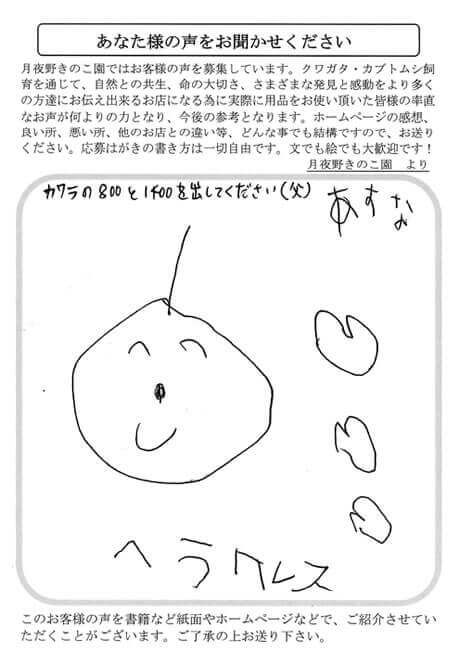 あなた様の声をお聞かせください
月夜野きのこ園ではお客様の声を募集しています。クワガタ・カブトムシ飼
育を通じて、自然との共生、命の大切さ、さまざまな発見と感動をより多く
の方達にお伝え出来るお店になる為に実際に用品をお使い頂いた皆様の率直
なお声が何よりの力となり、今後の参考となります。ホームページの感想、
良い所、悪い所、他のお店との違い等、どんな事でも結構ですので、お送り
ください。応募はがきの書き方は一切自由です。文でも絵でも大歓迎です！
月夜野きのこ園　より
カワラの800と1400を出してください(父)
あすな
ヘラクレス
このお客様の声を書籍など紙面やホームページなどで、ご紹介させてい
ただくことがございます。ご了承の上お送り下さい。